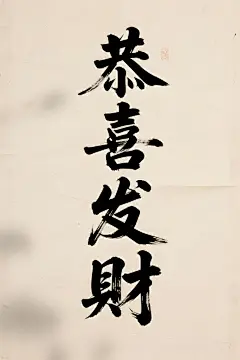 恭喜发財